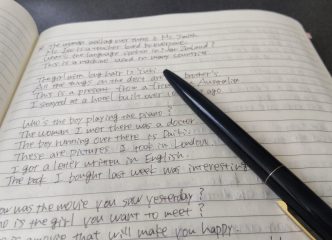 The woman walking over there is Ms. Smith
Mr. Ito is a teacher loved by everyone.
What's the language spoken in New Zealand?
This is a machine used in many countries
The girl with long hair is
All the things on the desk are my brother's
This is a present from a in Australia
I stayed at a hotel built over ago.
Who's the boy playing the piano?
The woman I met there was a doctor
The boy running over there is Daichi.
These are pictures I took in London.
I got a letter written in English.
The book I bought last week was interesting
was the movie you saw yesterday?
is the girl you want to meet?
movie that will make you happy.